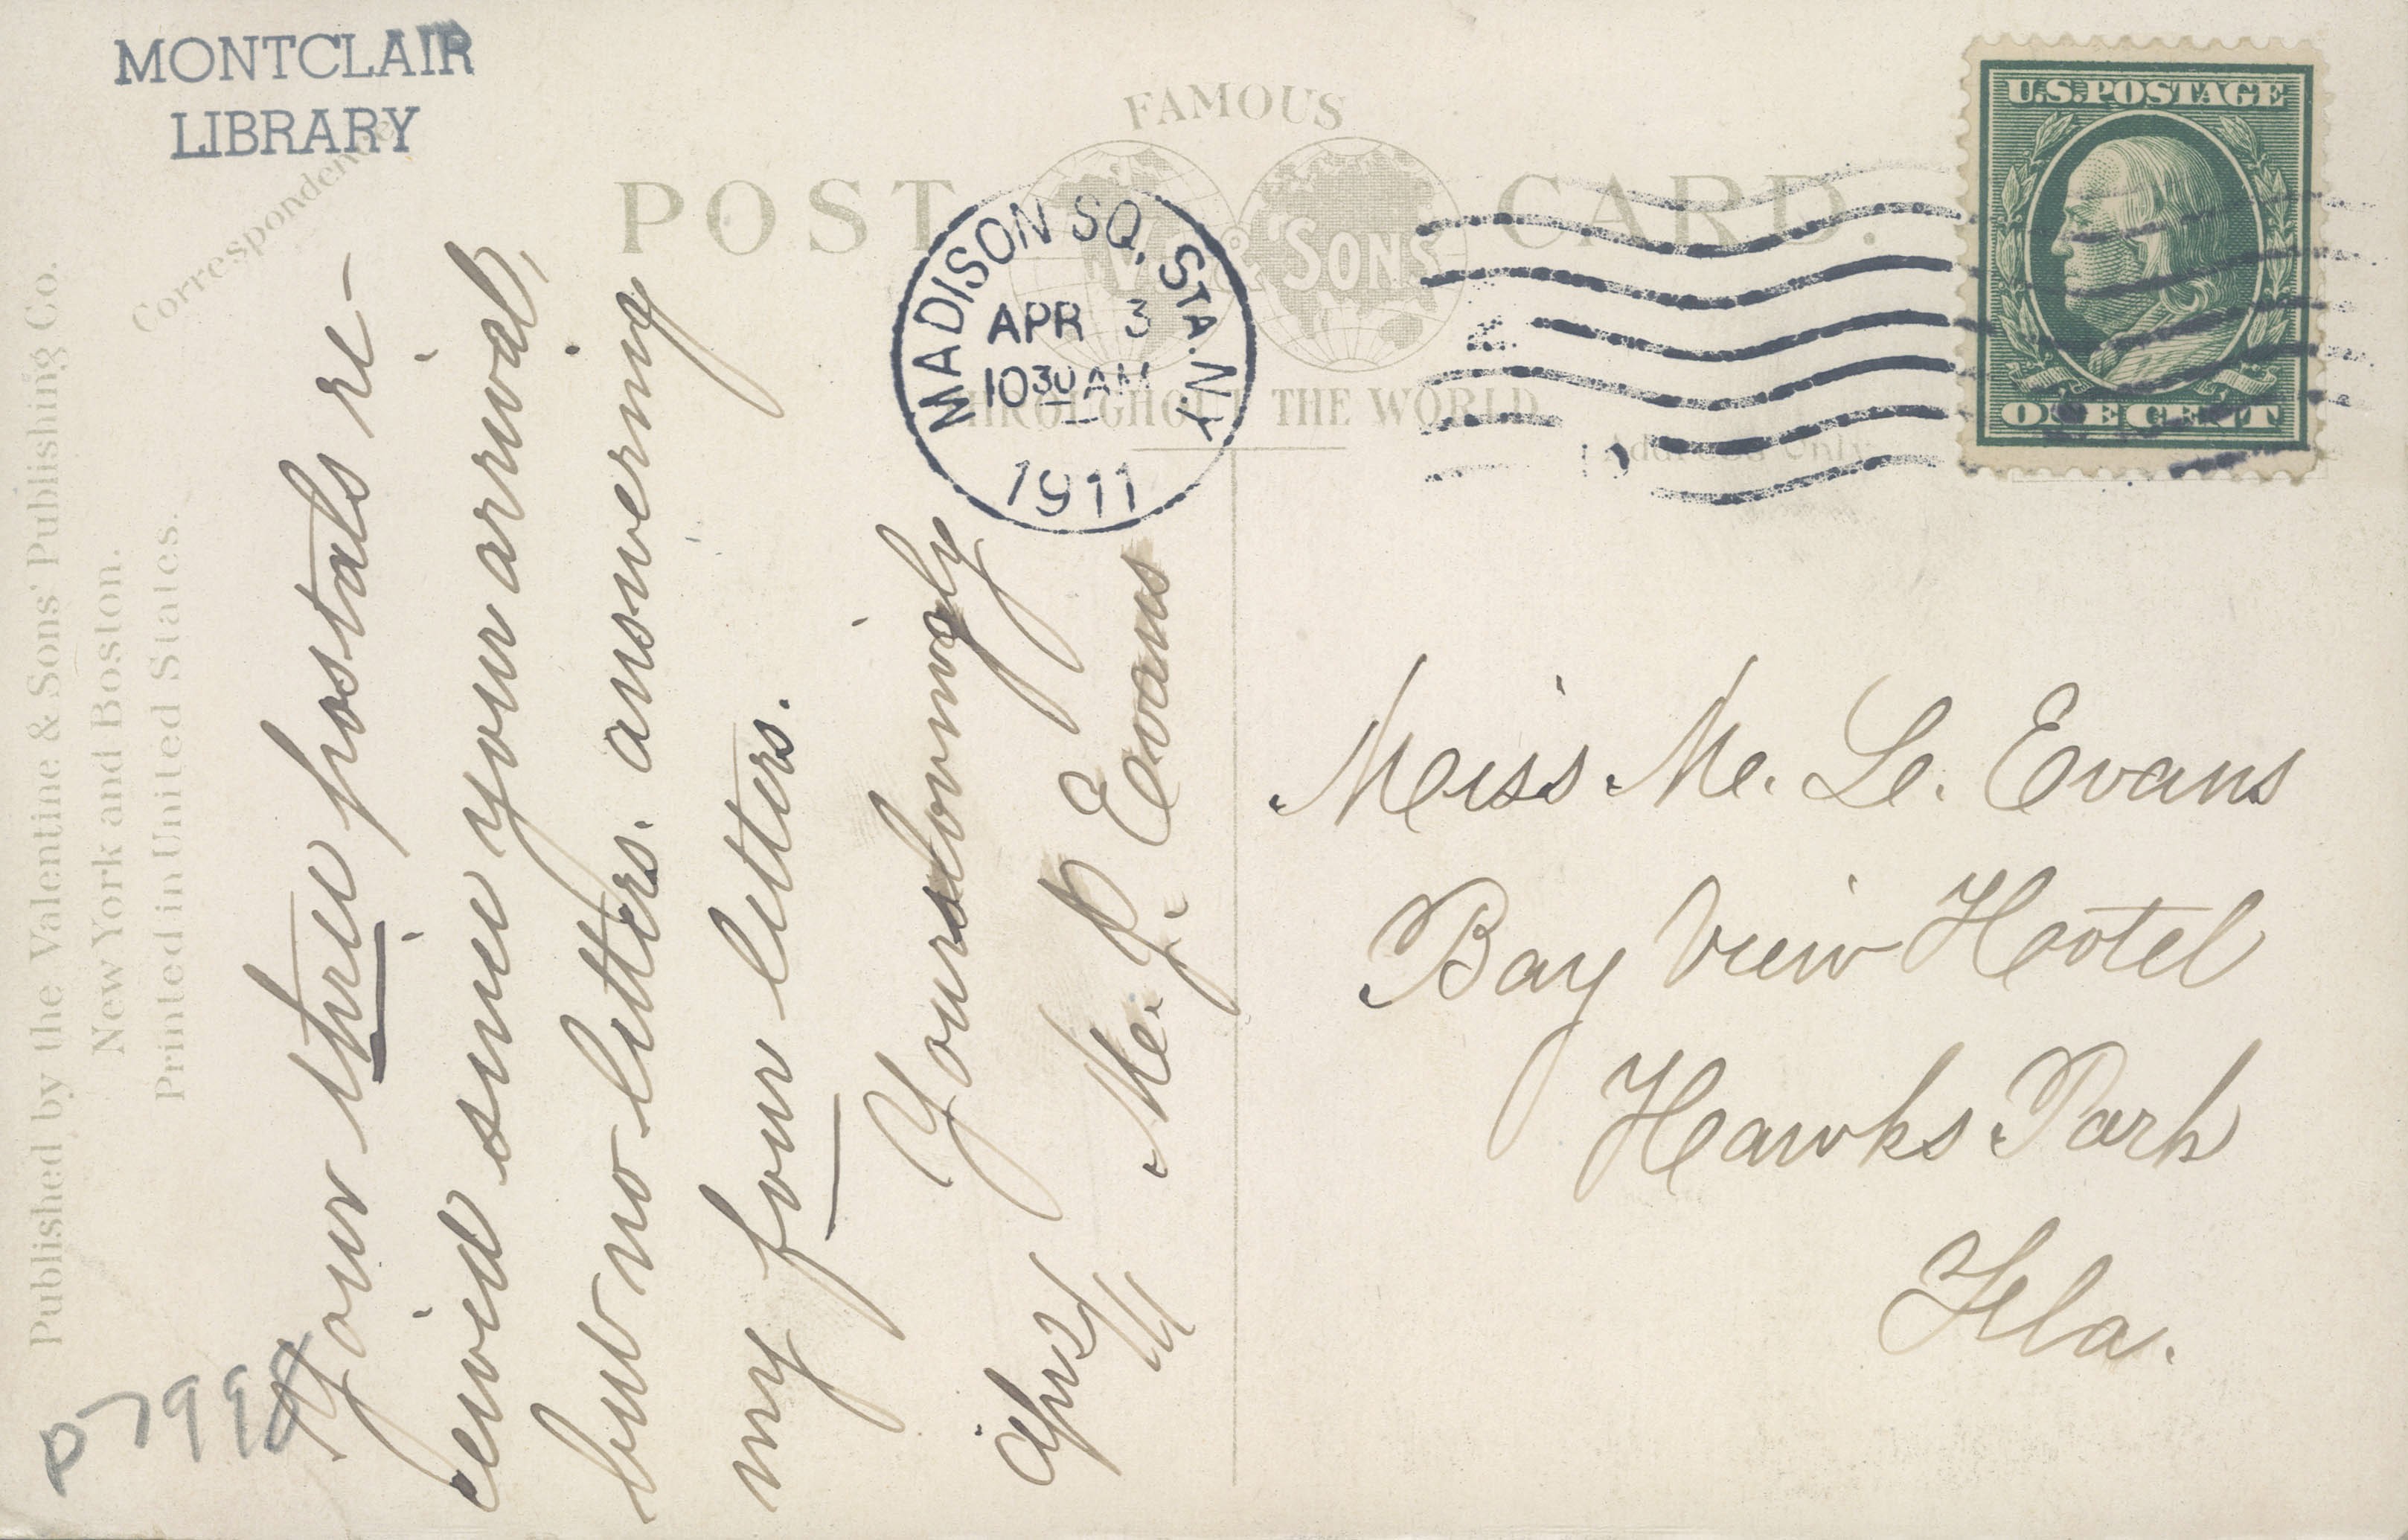 MONTCLAIR
LIBRARY
Correspondence
FAMOUS
POST CARD.
V & SONS
THROUGHOUT THE WORLD
Address only
U.S. POSTAGE
ONE CENT
MADISON SQ. STA. N.Y.
APR 3
10 30 AM
1911
Published by the Valentine & Sons' Publishing Co.
New York and Boston.
Printed in United States.
Your three postals re-
ceived since your arrival,
but no letters. answering
my four letters.
Yours lovingly
M. P. Evans
Apr 2/11
Miss M. L. Evans
Bay View Hotel
Hawks Park
Fla.